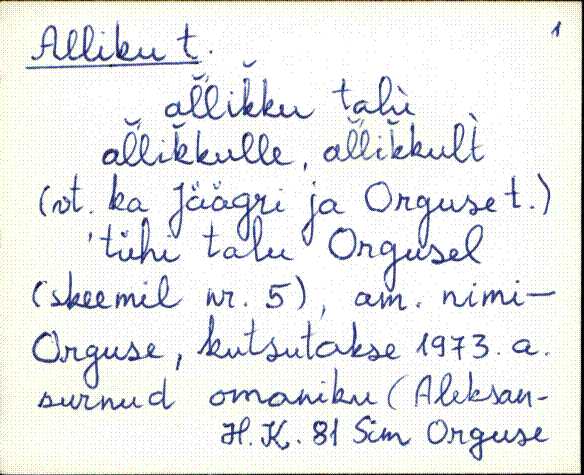 1
Alliku t.
al̆likku talù
al̆lik̆kulle, al̆lik̆kult̀
(vt. ka Jäägri ja Orguse t.)
'tühi talu Orgusel
(skeemil nr. 5), am. nimi-
Orguse, kutsutakse 1973. a.
surnud omaniku (Aleksan-
H. K. 81 Sim Orguse